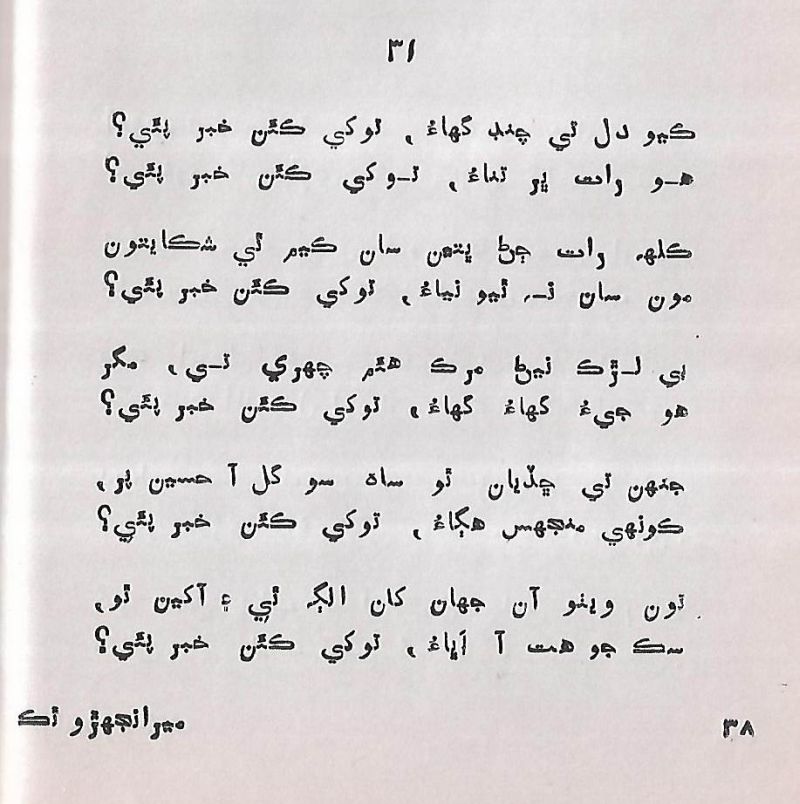 ۳۱
ڪيو دل تي چنڊ گهاءُ، توکي ڪٿن خبر پئي؟
هو رات ڀر تناءُ، توکي ڪٿن خبر پئي؟
ڪلهه رات ڄڻ ڀتين سان ڪيم ٿي شڪايتون
مون سان نه ٿيو نياءُ، توکي ڪٿن خبر پئي؟
بي لڙڪ نيڻ مرڪ هئم چهري تي، مگر
هو جيءُ گهاءُ گهاءُ، توکي ڪٿن خبر پئي؟
جنهن تي ڇڏيان ٿو ساهه سو گل آ حسين پر،
ڪونهي منجهس هڳاءُ، توکي ڪٿن خبر پئي؟
تون ويٺو آن جهان کان الڳ ٿي ۽ آکين ٿو،
سڪ جو هت آ اَڀاءُ، توکي ڪٿن خبر پئي؟
ميرانجهڙو ٿڪ
۳۸